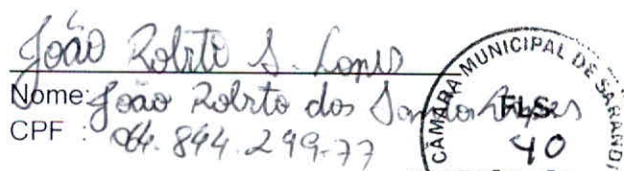 João Roberto S. Lopes
Nome: João Roberto dos Santos Lopes
CPF : 064.844.299-77
CÂMARA MUNICIPAL DE SARANDI
FLS.
40